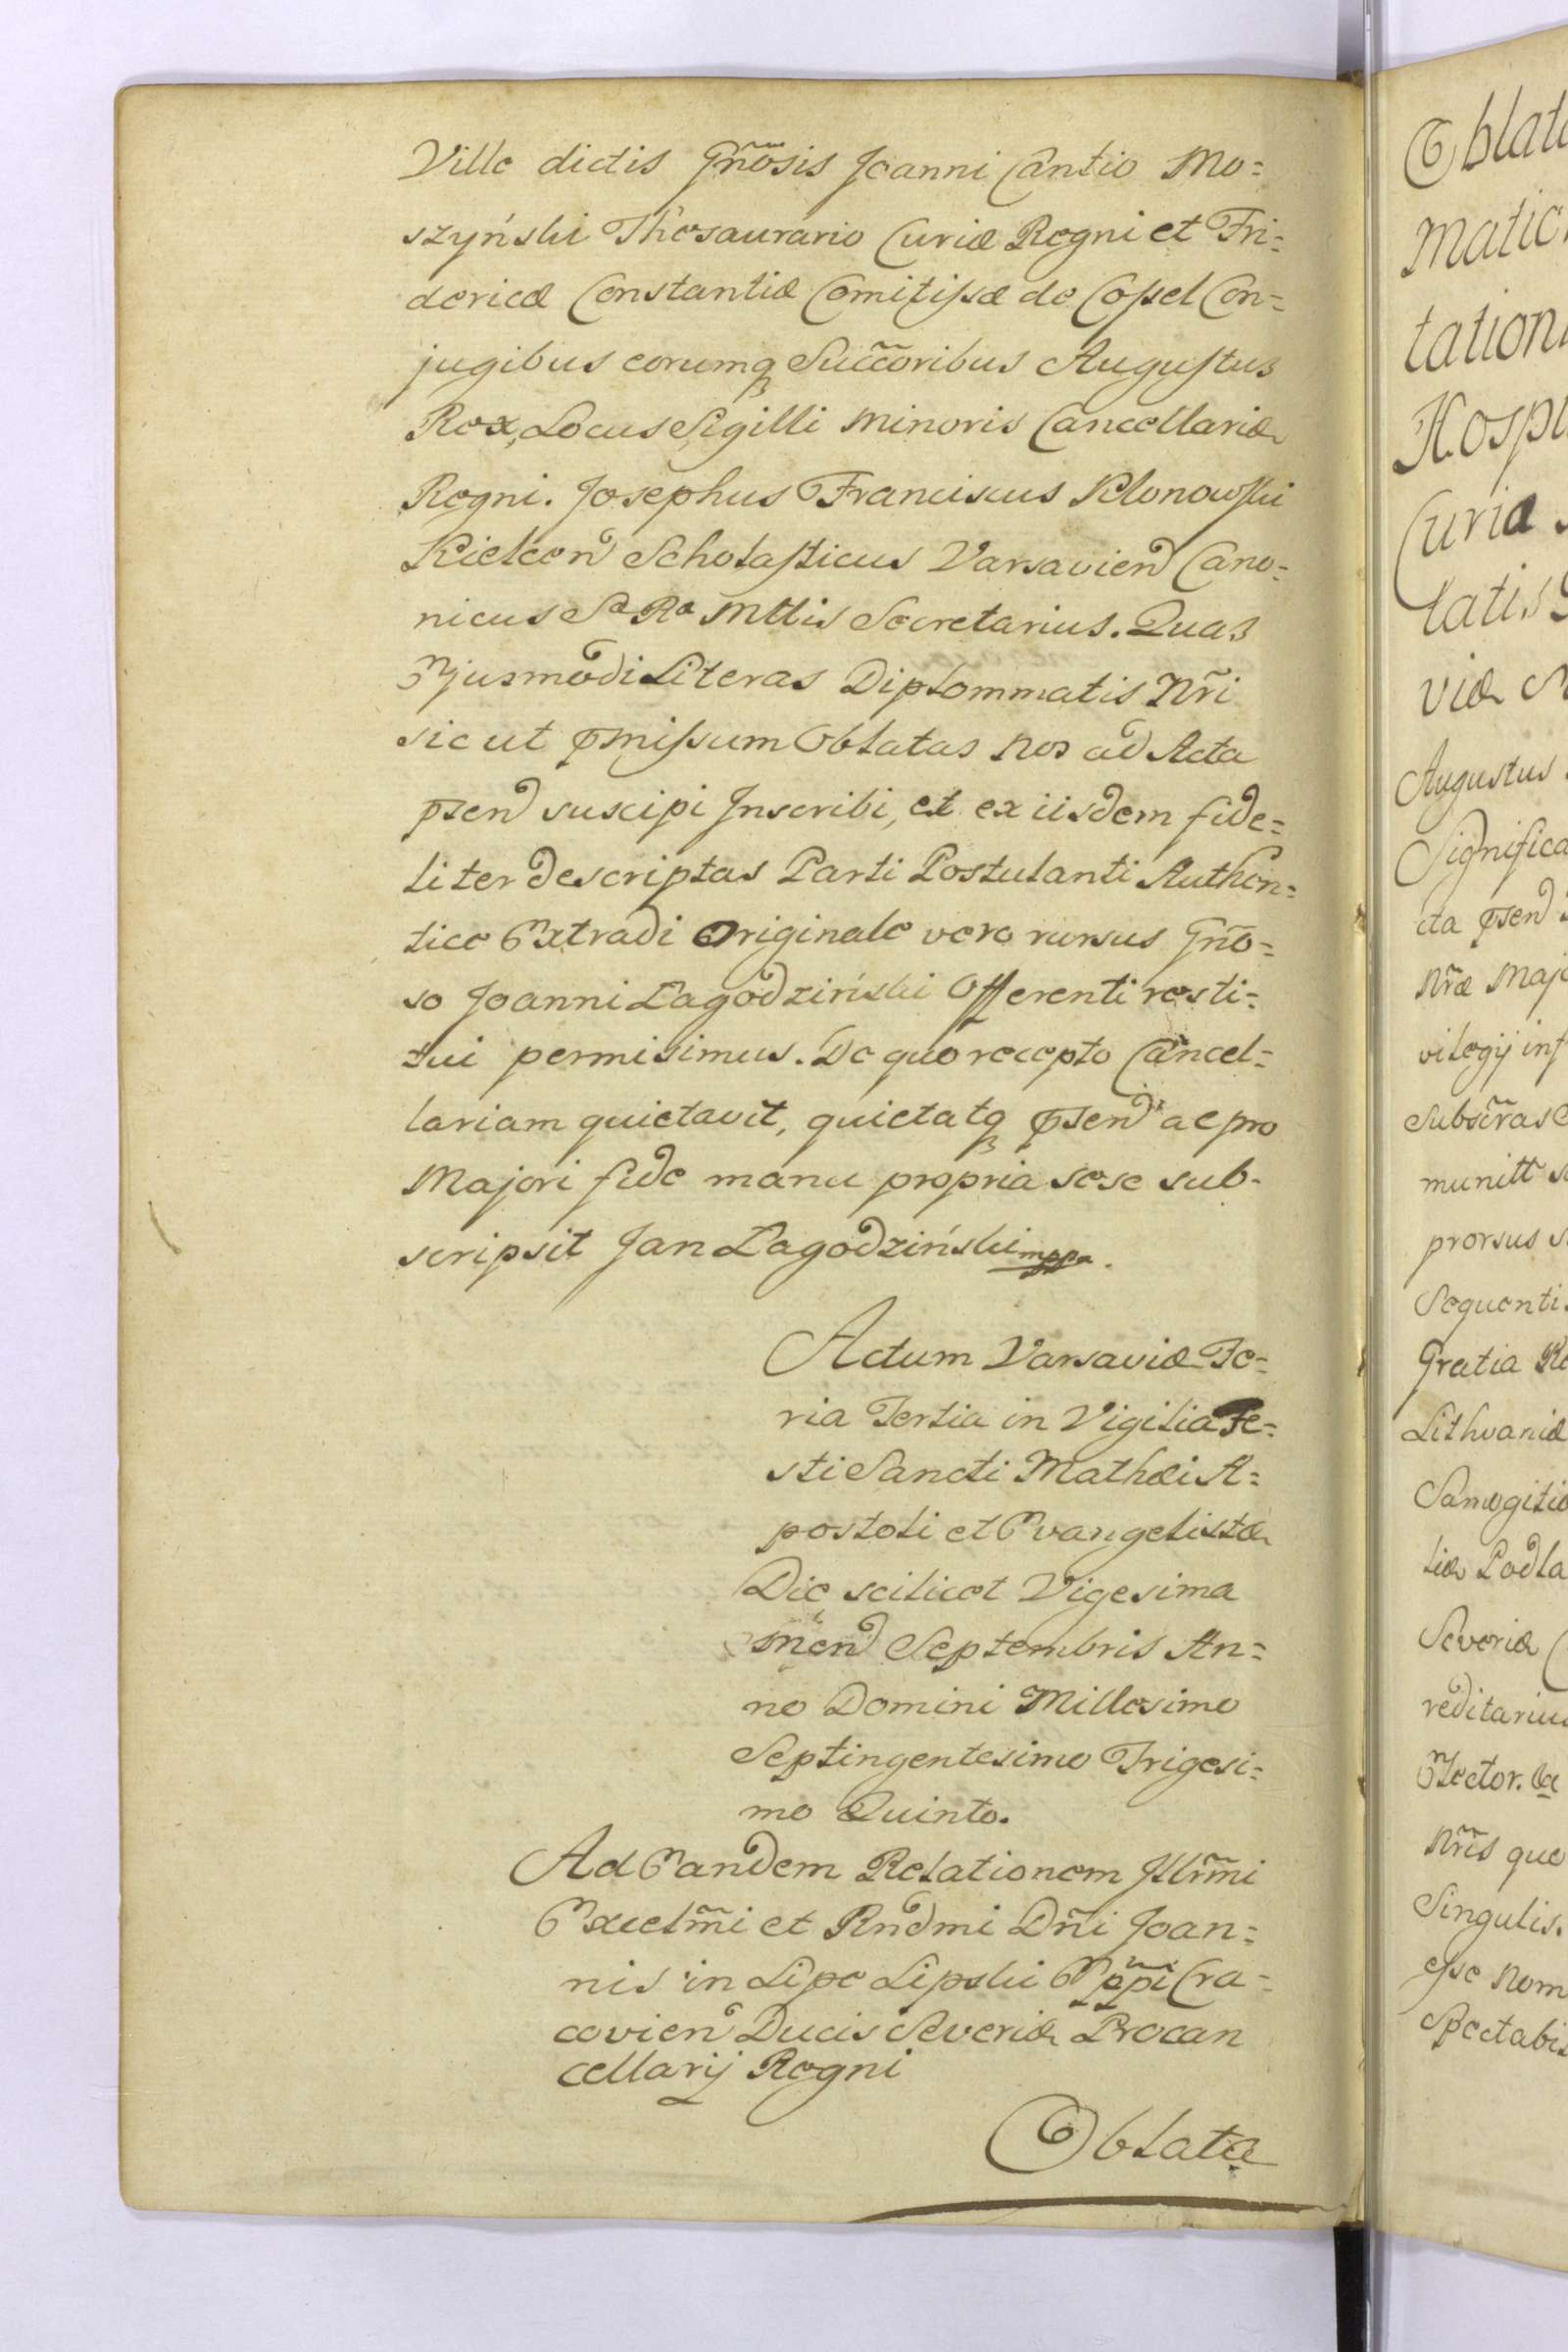 Ville dictis Gñosis Joanni Cantio Mo=
szyński Thesaurario Curiæ Regni et Fri=
dericæ Constantiæ Comitissæ de Cossel Con=
jugibus eorumq Succ̃oribus Augustus
Rex, Locus Sigilli Minoris Cancellariæ
Regni. Josephus Franciscus Klonowski
Kielcen Scholasticus Varsavien Cano=
nicus Sa Ra Mttis Secretarius. Quas
Ejusmodi Literas Diplommatis Nr̃i
sicut pmissum Oblatas nos ad Acta
psen suscipi Inscribi, et ex iisdem fide=
liter descriptas Parti Postulanti Authen=
tice Extradi Originale vero rursus Gño=
so Joanni Łagodziński Offerenti resti=
tui permisimus. De quo recepto Cancel=
lariam quietavit, quietatq psen ac pro
Majori fide manu propria sese sub-
scripsit Jan Łagodziński mppa.
Actum Varsaviæ Fe=
ria Tertia in Vigilia Fe=
sti Sancti Mathæi A=
postoli et Evangelistæ
Die scilicet Vigesima
Men Septembris An=
no Domini Millesimo
Septingentesimo Trigesi=
mo Quinto.
Ad Eandem Relationem Jllr̃mi
Excelm̃i et Rndmi Dñi Joan=
nis in Lipe Lipski Epp̃i Cra=
covien Ducis Severiæ Procan
cellarij Regni
Oblata
Oblat
matic
tation
Hospi
Curiæ
latis
viæ
Augustus
Significa
cta psen
Nr̃æ Maje
vilegij inf
Subscr̃as
munitt
prorsus
Sequenti
Gratia Re
Lithvaniæ
Samogitiæ
liæ Podla
Severiæ
reditarius
Elector.
Nr̃is quo
Singulis.
esse nom
Spectabi